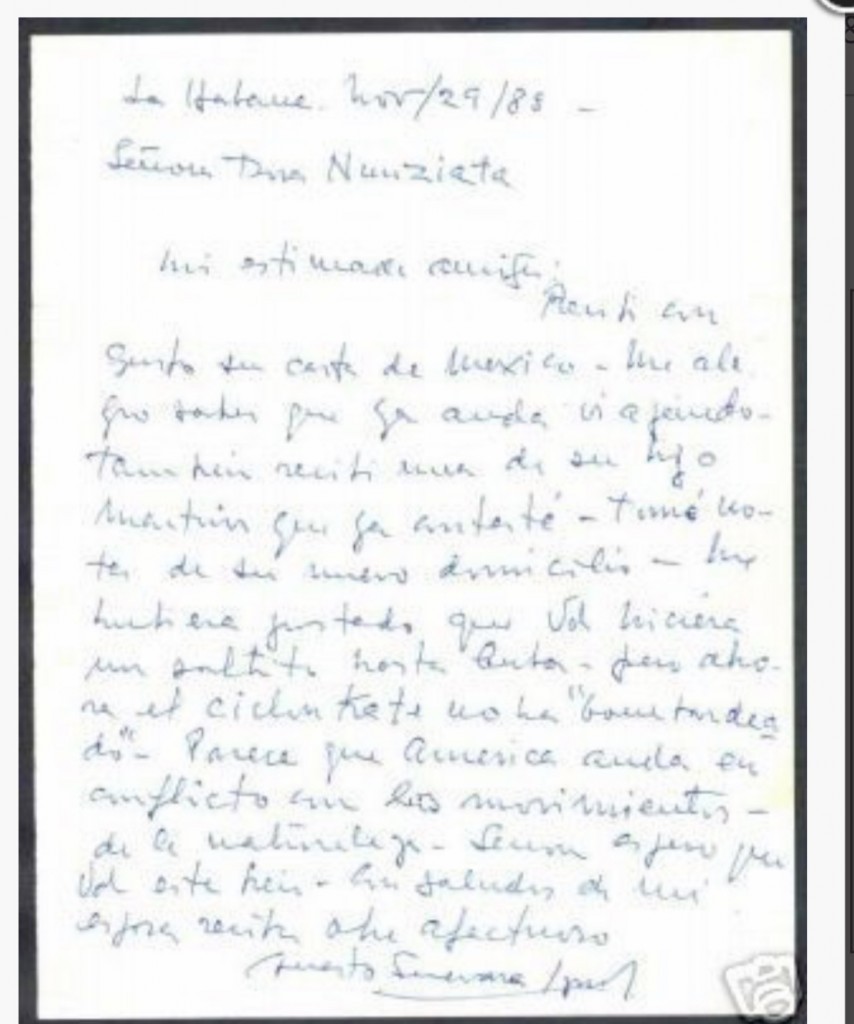 La Habana. Nov/29/85 -
Señora Nunziata
Mi estimada amiga:
Recibí con
gusto su carta de Mexico - Me ale
gro saber que ya anda viajando -
tambien recibi una de su hijo
Martin que ya contesté - Tomé no-
ta de su nuevo domicilio - Me
hubiera gustado que Ud hiciera
un saltito hasta Cuba - pero aho-
ra el ciclon Kate no ha "bombardea
do" - Parece que America anda en
conflicto con los movimientos -
de la naturaleza - Señora espero que
Ud este bien - Con saludos de mi
esposa reciba otro afectuoso
Ernesto Guevara Lynch